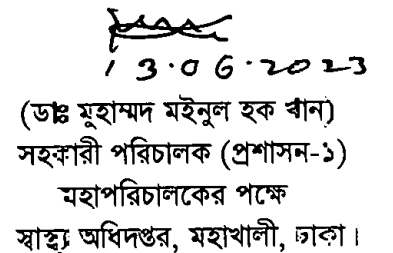 13.06.2023
(ডাঃ মুহাম্মদ মইনুল হক খান)
সহকারী পরিচালক (প্রশাসন-১)
মহাপরিচালকের পক্ষে
স্বাস্থ্য অধিদপ্তর, মহাখালী, ঢাকা।